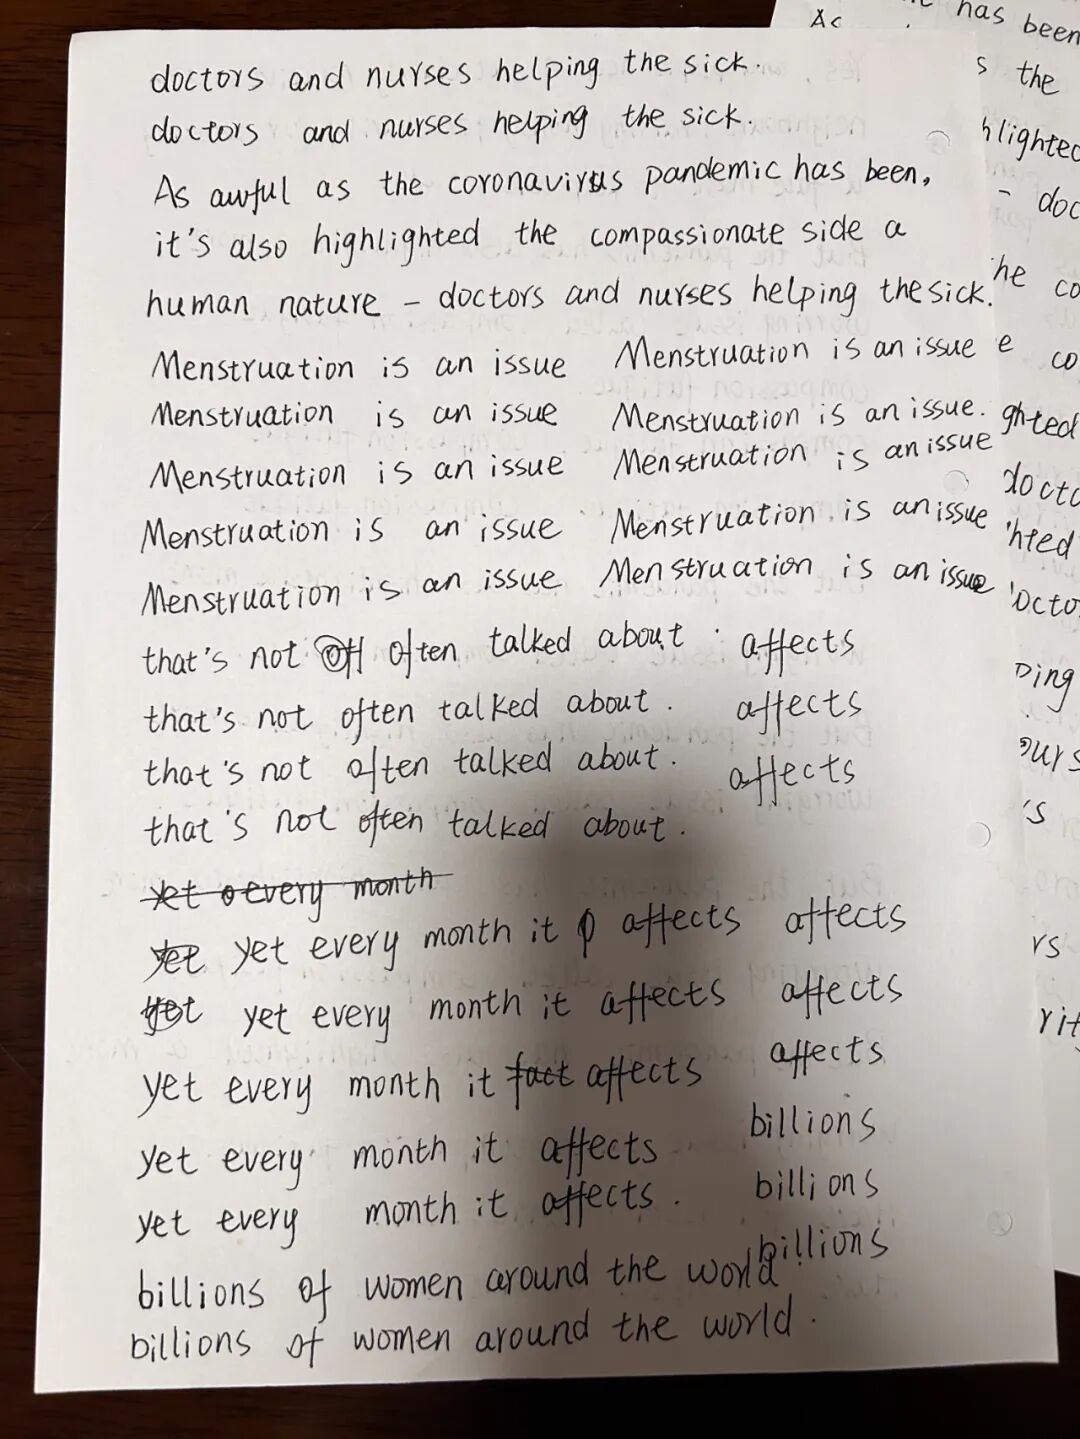 doctors and nurses helping the sick.
doctors and nurses helping the sick.
As awful as the coronavirus pandemic has been,
it's also highlighted the compassionate side a
human nature – doctors and nurses helping the sick.
Menstruation is an issue Menstruation is an issue
Menstruation is an issue Menstruation is an issue.
Menstruation is an issue Menstruation is an issue
Menstruation is an issue Menstruation is an issue
Menstruation is an issue Menstruation is an issue
that's not often talked about affects
that's not often talked about. affects
that's not often talked about. affects
that's not often talked about.
yet every month
yet yet every month it affects affects
yet yet every month it affects affects
yet every month it fact affects affects
yet every month it affects billions
yet every month it affects. billions
billions of women around the world billions
billions of women around the world.
has been
s the
hlighted
- doc
he co
e co
ghted
docto
hted
octo
ping
ours
's
rs
rit